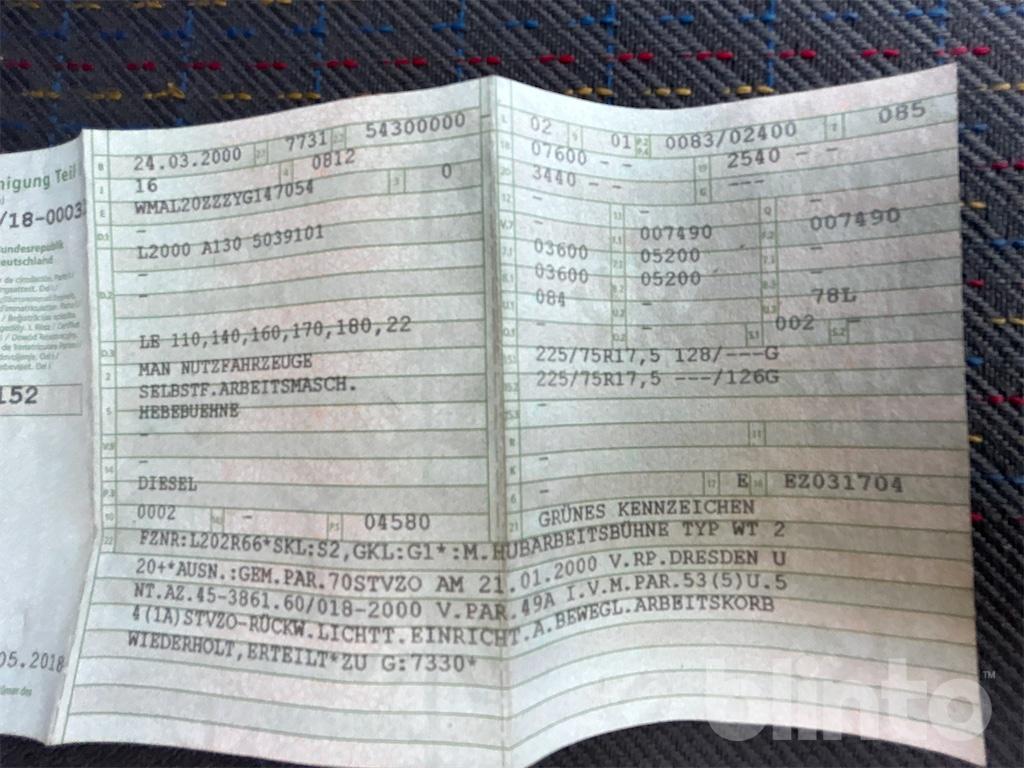 nigung Teil
/18-0003
Bundesrepublik
Deutschland
152
05.2018
B 24.03.2000 7731 54300000
J 16 4 0812
E WMAL20ZZZYG147054 3 0
D.1 -
L2000 A130 5039101
-
D.2 -
LE 110,140,160,170,180,22
D.3 MAN NUTZFAHRZEUGE
2 SELBSTF.ARBEITSMASCH.
5 HEBEBUEHNE
-
V.9 -
14 DIESEL
P.3 0002 - P.1 04580
L 02 9 01 P.2 P.4 0083/02400 T 085
18 07600 - - 19 2540 - -
20 3440 - - G ---
12 - 13 - Q -
V.7 - F.1 007490 F.2 007490
7.1 03600 7.2 05200 7.3 -
8.1 03600 8.2 05200 8.3 -
U.1 084 - 78L
O.1 - O.2 - S.1 002 S.2 -
15.1 225/75R17,5 128/---G
15.2 225/75R17,5 ---/126G
15.3 -
R - 11
K -
6 - 17 E 16 EZ031704
21 GRÜNES KENNZEICHEN
22 FZNR:L202R66*SKL:S2,GKL:G1*:M.HUBARBEITSBÜHNE TYP WT 2
20+*AUSN.:GEM.PAR.70STVZO AM 21.01.2000 V.RP.DRESDEN U
NT.AZ.45-3861.60/018-2000 V.PAR.49A I.V.M.PAR.53(5)U.5
4(1A)STVZO-RÜCKW.LICHTT.EINRICHT.A.BEWEGL.ARBEITSKORB
WIEDERHOLT,ERTEILT*ZU G:7330*
blinto™